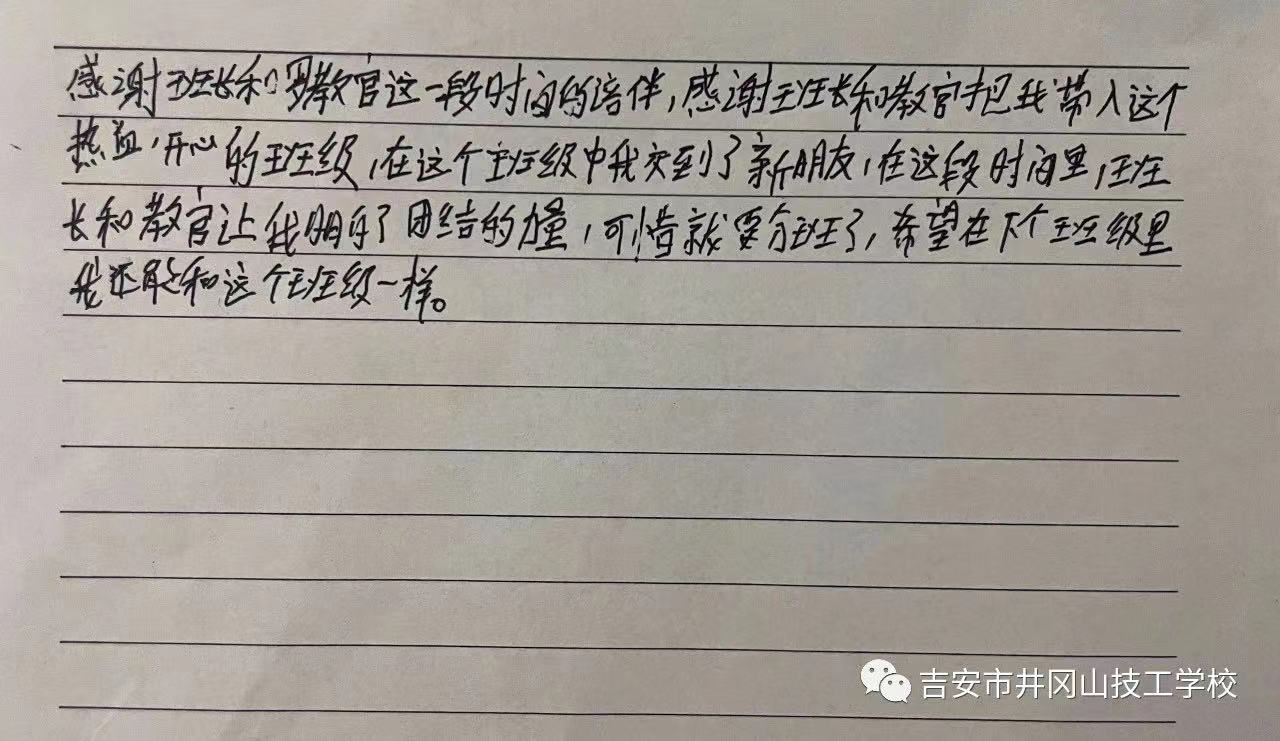 感谢班长和罗教官这一段时间的陪伴,感谢班长和教官把我带入这个
热血,开心的班级,在这个班级中我交到了新朋友,在这段时间里,班
长和教官让我明白了团结的力量,可惜就要分班了,希望在下个班级里
我还能和这个班级一样。
吉安市井冈山技工学校